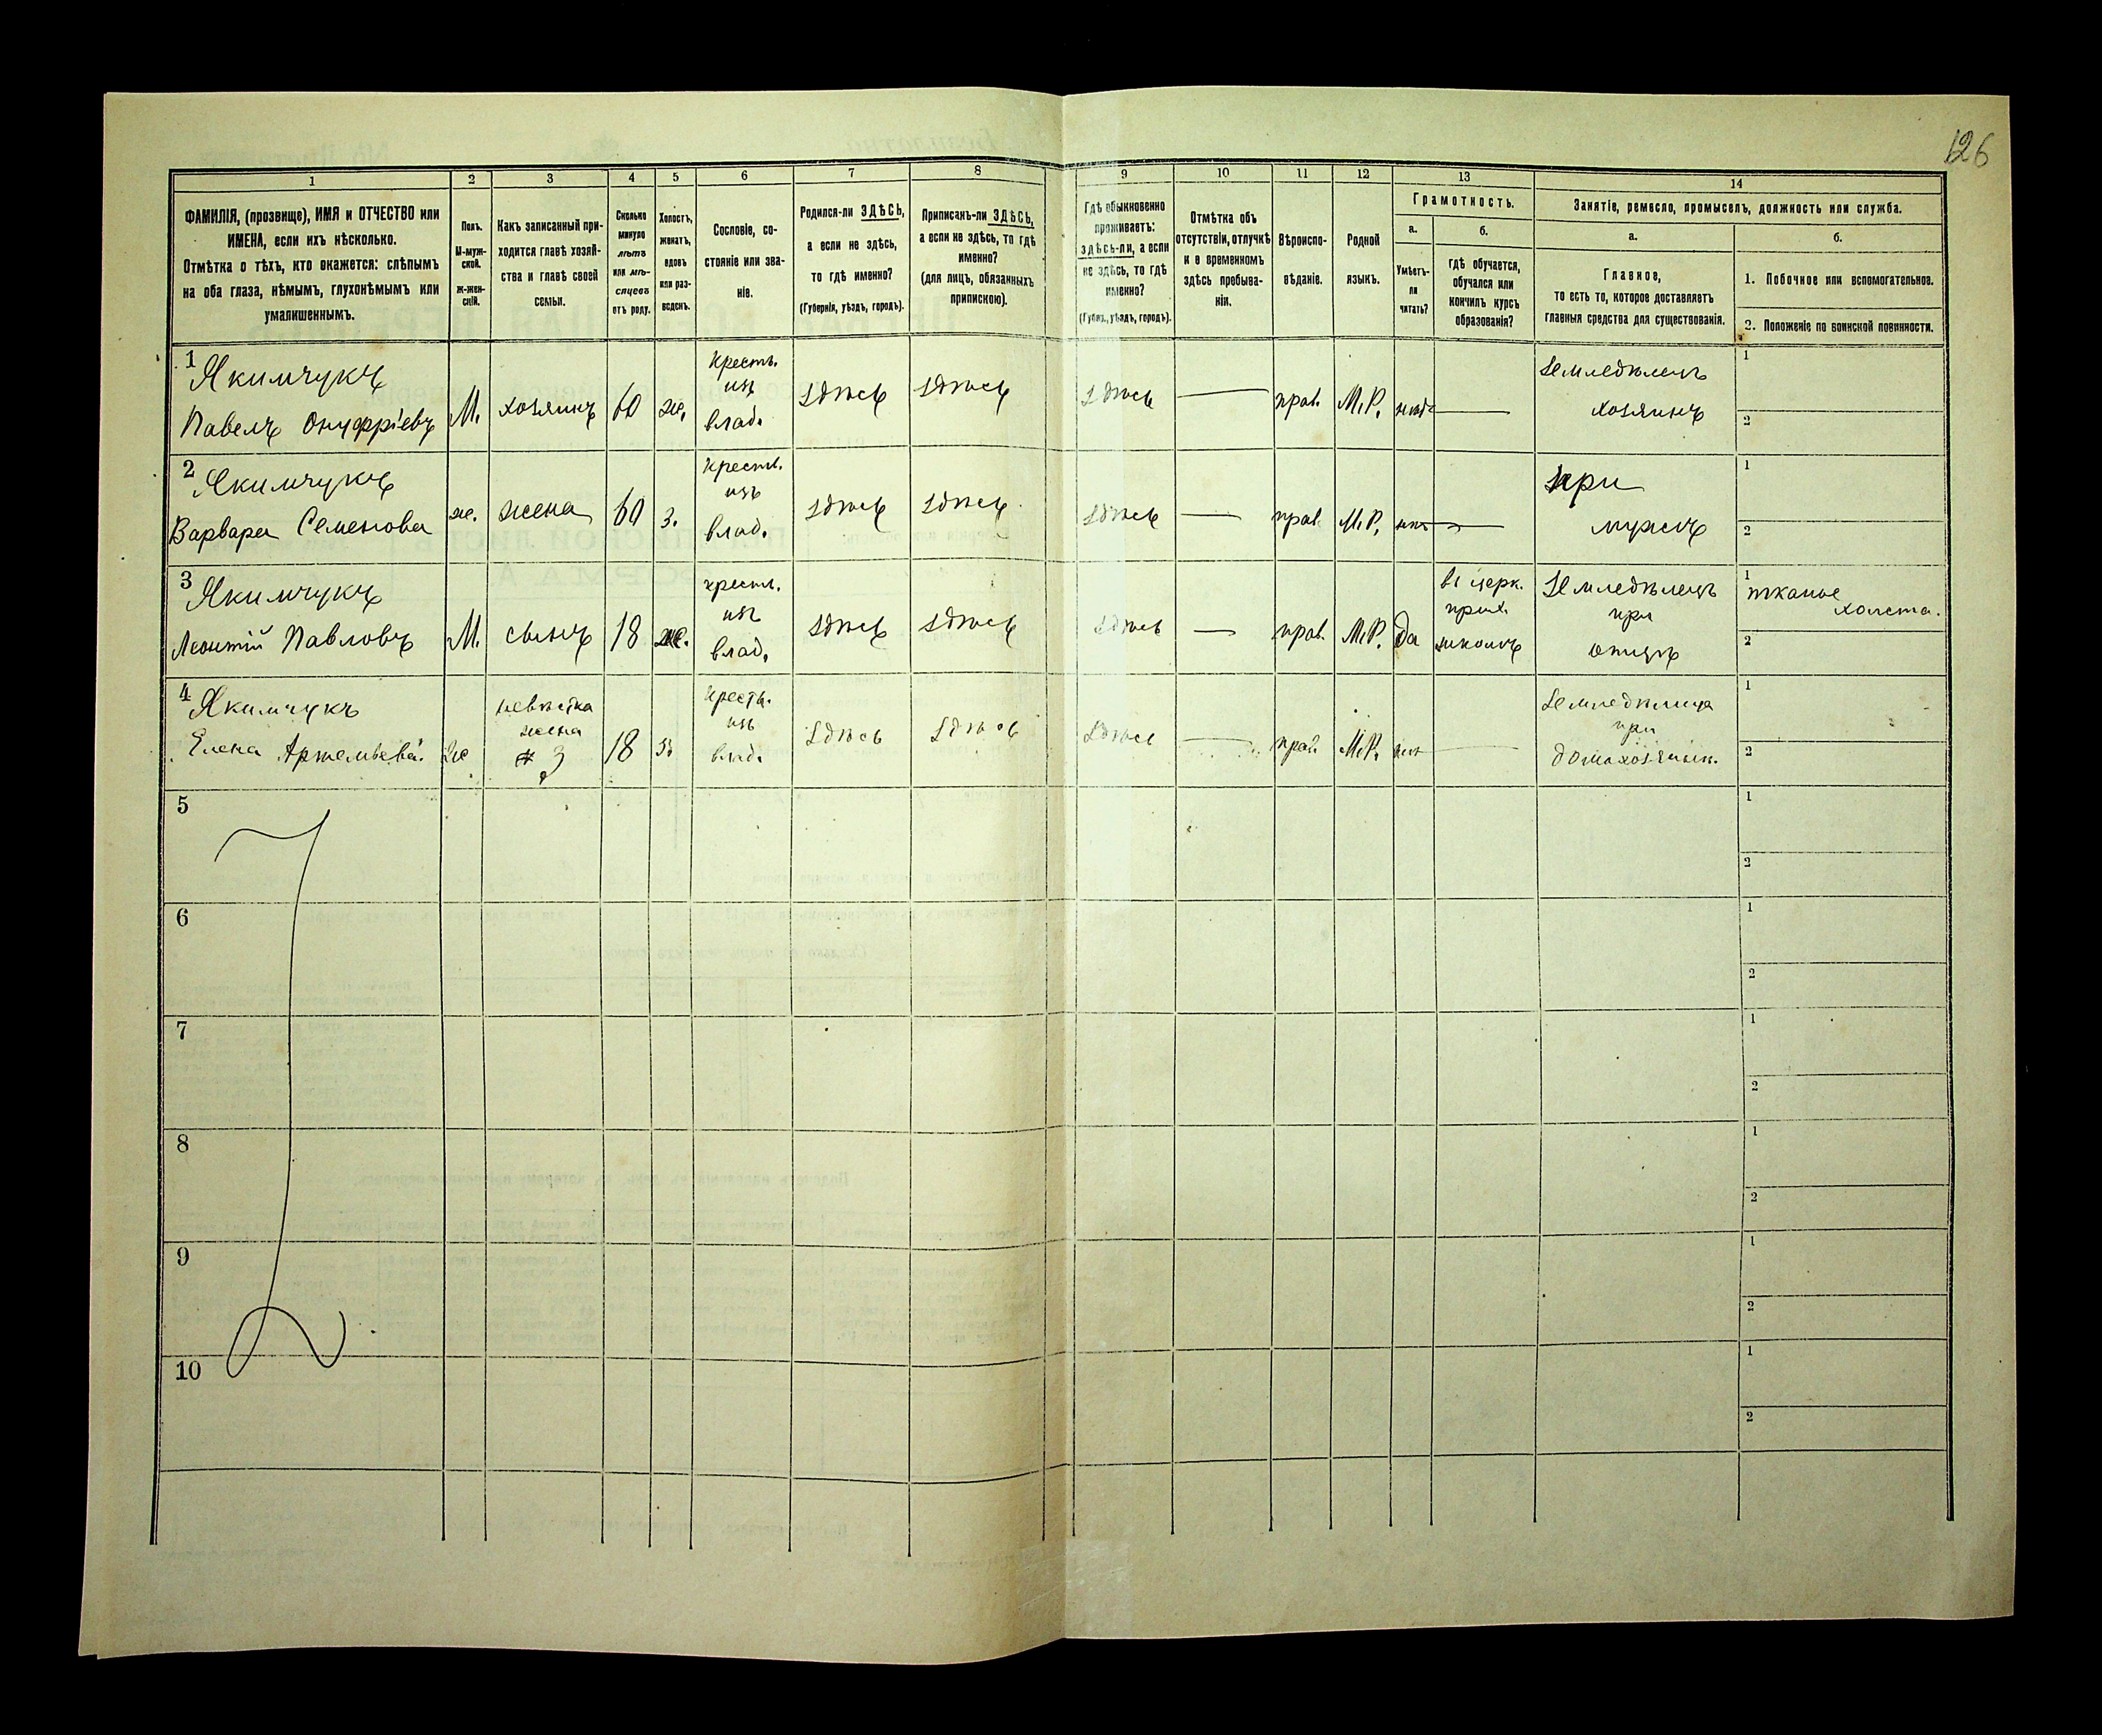 126
1 2 3 4 5 6 7 8 9 10 11 12 13 14
ФАМИЛІЯ, (прозвище), ИМЯ и ОТЧЕСТВО или
ИМЕНА, если ихъ нѣсколько.
Отмѣтка о тѣхъ, кто окажется: слѣпымъ
на оба глаза, нѣмымъ, глухонѣмымъ или
умалишеннымъ.
Полъ.
М-муж-
ской.
Ж-жен-
скій.
Какъ записанный при-
ходится главѣ хозяй-
ства и главѣ своей
семьи.
Сколько
минуло
лѣтъ
или мѣ-
сяцевъ
отъ роду.
Холостъ,
женатъ,
вдовъ
или раз-
веденъ.
Сословіе, со-
стояніе или зва-
ніе.
Родился-ли ЗДѢСЬ,
а если не здѣсь,
то гдѣ именно?
(Губернія, уѣздъ, городъ).
Приписанъ-ли ЗДѢСЬ,
а если не здѣсь, то гдѣ
именно?
(для лицъ, обязанныхъ
припискою).
Гдѣ обыкновенно
проживаетъ:
здѣсь-ли, а если
не здѣсь, то гдѣ
именно?
(Губер., уѣздъ, городъ).
Отмѣтка объ
отсутствіи, отлучкѣ
и о временномъ
здѣсь пребыва-
ніи.
Вѣроиспо-
вѣданіе.
Родной
языкъ.
Грамотность.
а.
Умѣетъ-
ли
читать?
б.
гдѣ обучается,
обучался или
кончилъ курсъ
образованія?
Занятіе, ремесло, промыселъ, должность или служба.
а.
Главное,
то есть то, которое доставляетъ
главныя средства для существованія.
б.
1. Побочное или вспомогательное.
2. Положеніе по воинской повинности.
1
Якимчукъ
Павелъ Онуфріевъ
М.
хозяинъ
60
ж.
крестъ.
изъ
влад.
здѣсь
здѣсь
здѣсь
прав.
М.Р.
Земледѣлецъ
хозяинъ
1
2
2
Якимчукъ
Варвара Семенова
ж.
жена
60
з.
крест.
изъ
влад.
здѣсь
здѣсь
здѣсь
прав.
М.Р.
при
мужѣ
1
2
3
Якимчукъ
Леонтій Павловъ
М.
сынъ
18
ж.
крест.
изъ
влад.
здѣсь
здѣсь
здѣсь
прав.
М.Р.
да
въ церк.
прих.
школѣ
Земледѣлецъ
при
отцѣ
1
тканье
холста.
2
4
Якимчукъ
Елена Артемьева
Ж
невѣстка
жена
3
18
з.
крестъ.
изъ
влад.
здѣсь
здѣсь
здѣсь
прав
М.Р.
Земледѣлица
при
домохозяин.
1
2
5
1
2
6
1
2
7
1
2
8
1
2
9
1
2
10
1
2